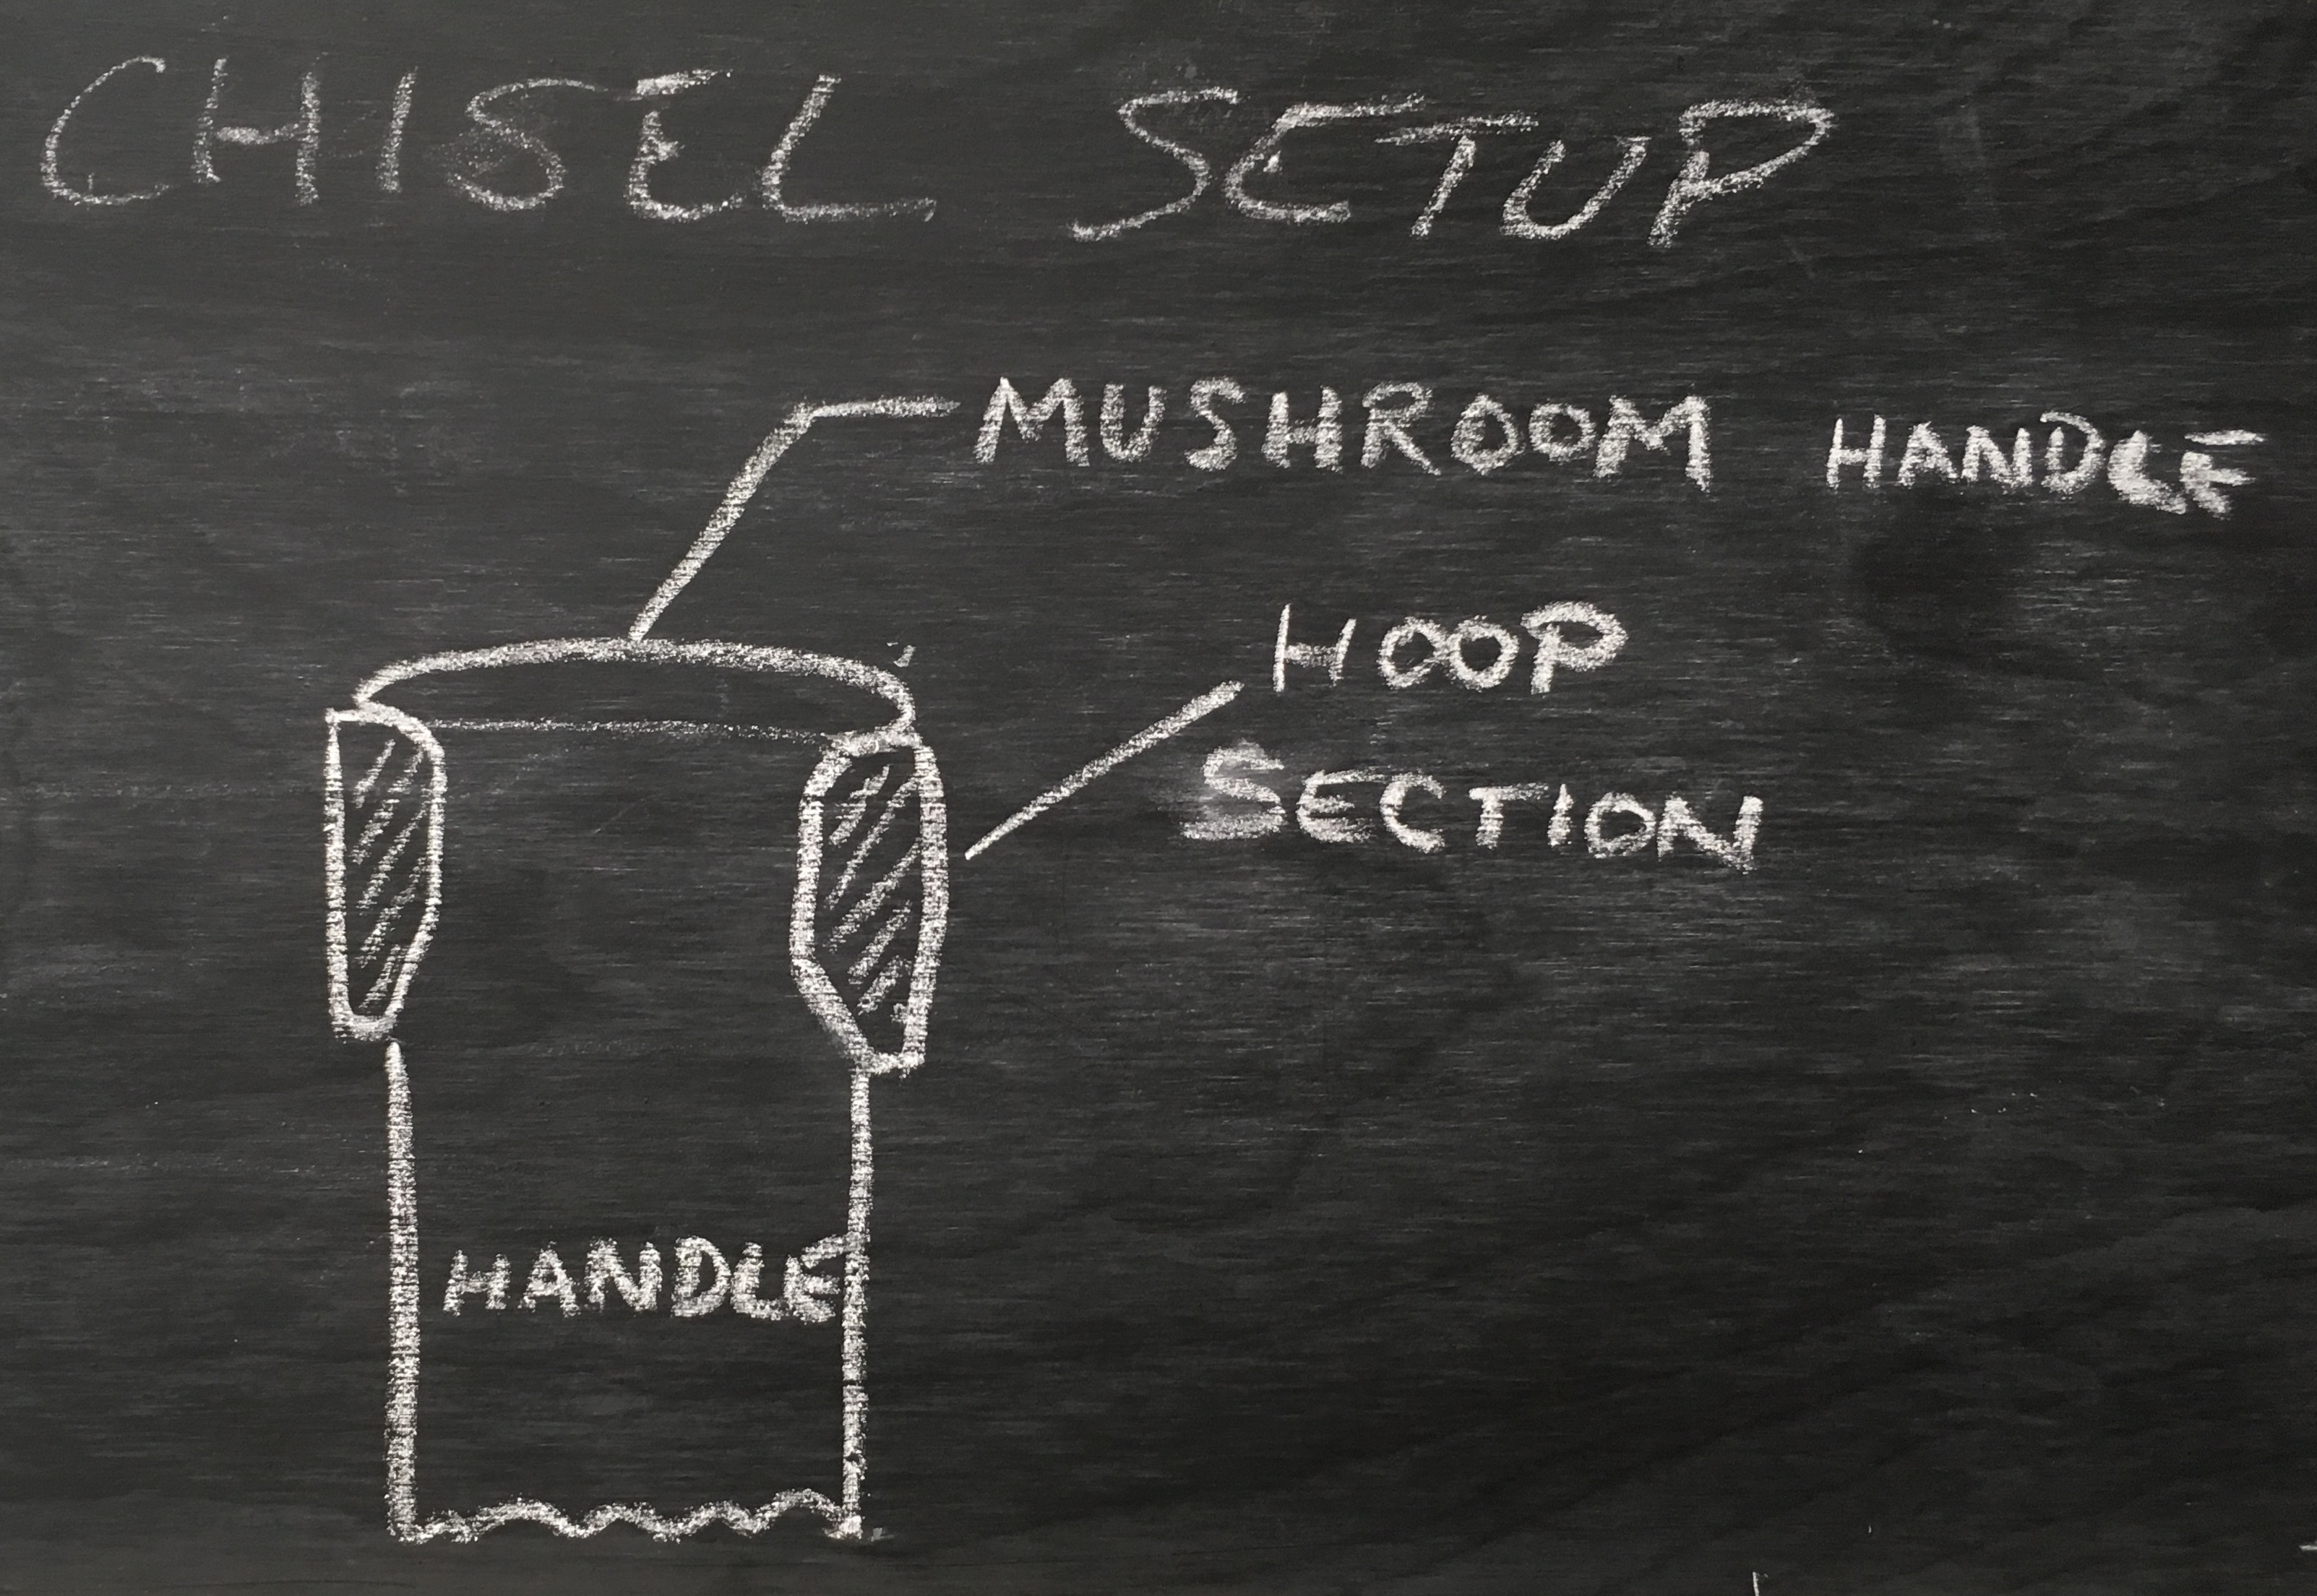 CHISEL SETUP
MUSHROOM HANDLE
HOOP
SECTION
HANDLE